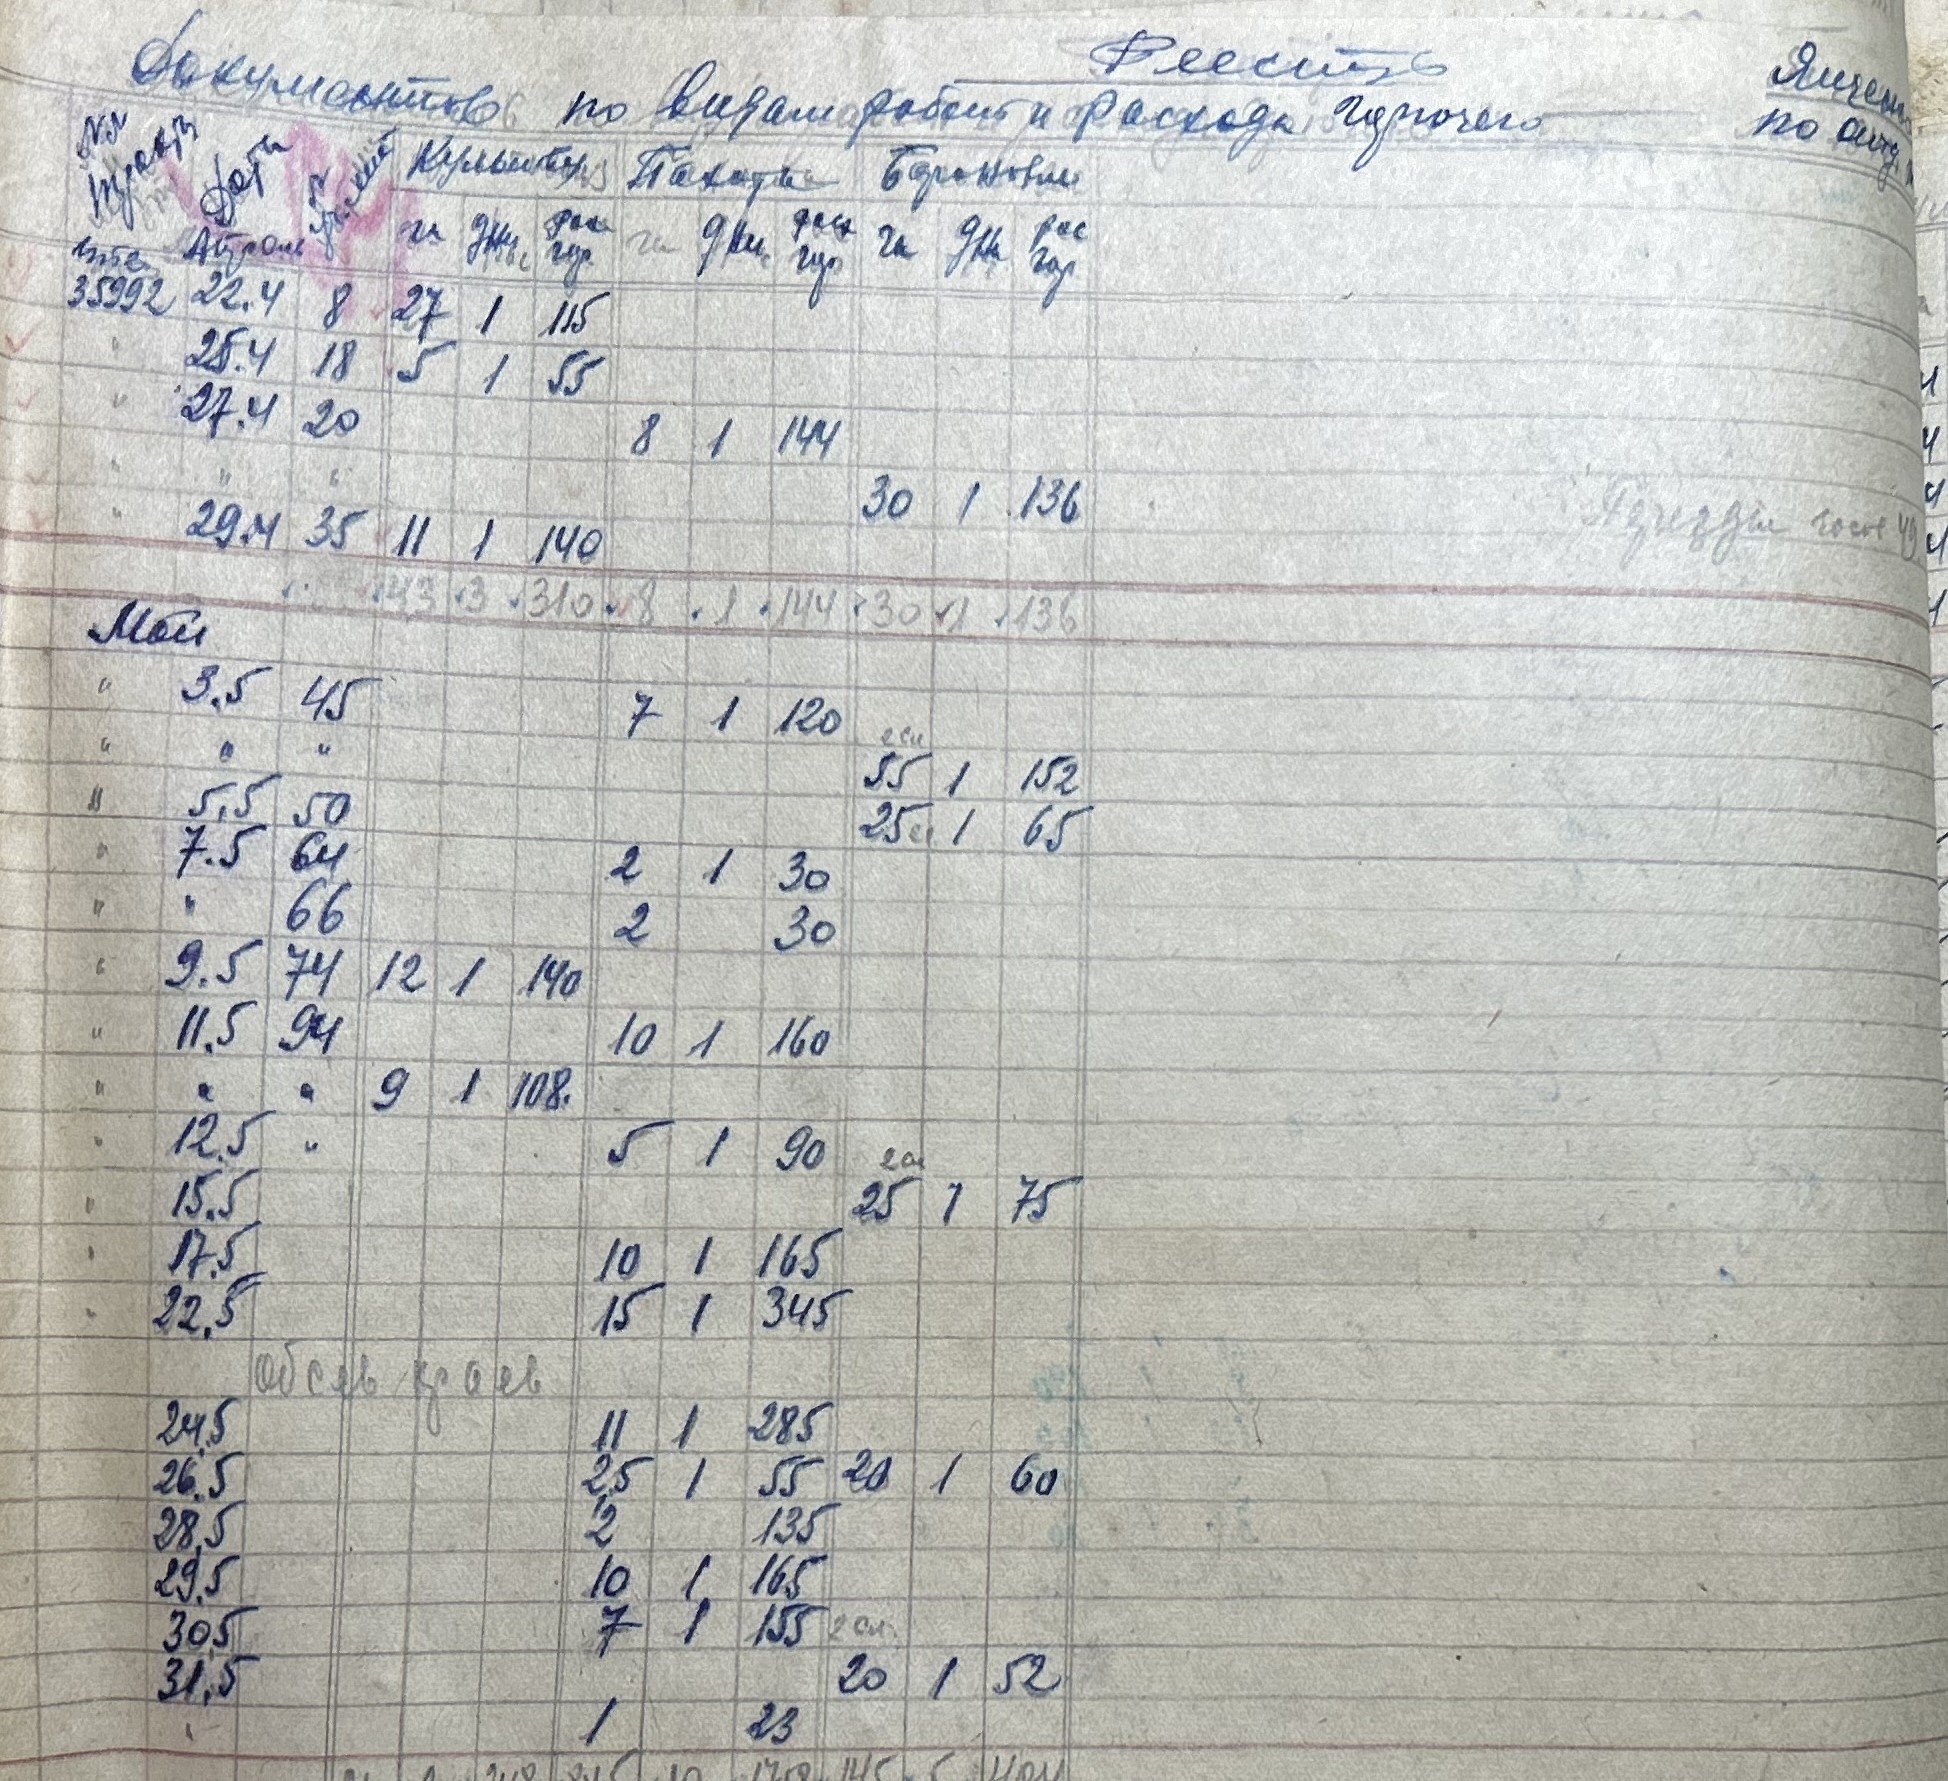 Реестр
Документов по видам работ и расхода горючего
по
Дата Культив Пахота Бороновые
Апрель га дни рас гор га дни расх гор га дни рас гор
35992 22.4 8 27 1 115
" 25.4 18 5 1 55
" 27.4 20 8 1 144
" " " 30 1 136
" 29.4 35 11 1 140
43 3 310 8 1 144 30 1 136
Май
" 3.5 45 7 1 120
" " " 55 1 152
" 5.5 50 25 1 65
" 7.5 64 2 1 30
" " 66 2 30
" 9.5 74 12 1 140
" 11.5 94 10 1 160
" " " 9 1 108.
" 12.5 " 5 1 90
" 15.5 25 1 75
" 17.5 10 1 165
" 22.5 15 1 345
Обсев краев
24.5 11 1 285
26.5 2,5 1 55 20 1 60
28.5 2 135
29.5 10 1 165
30 5 7 1 155
31.5 20 1 52
" 1 23